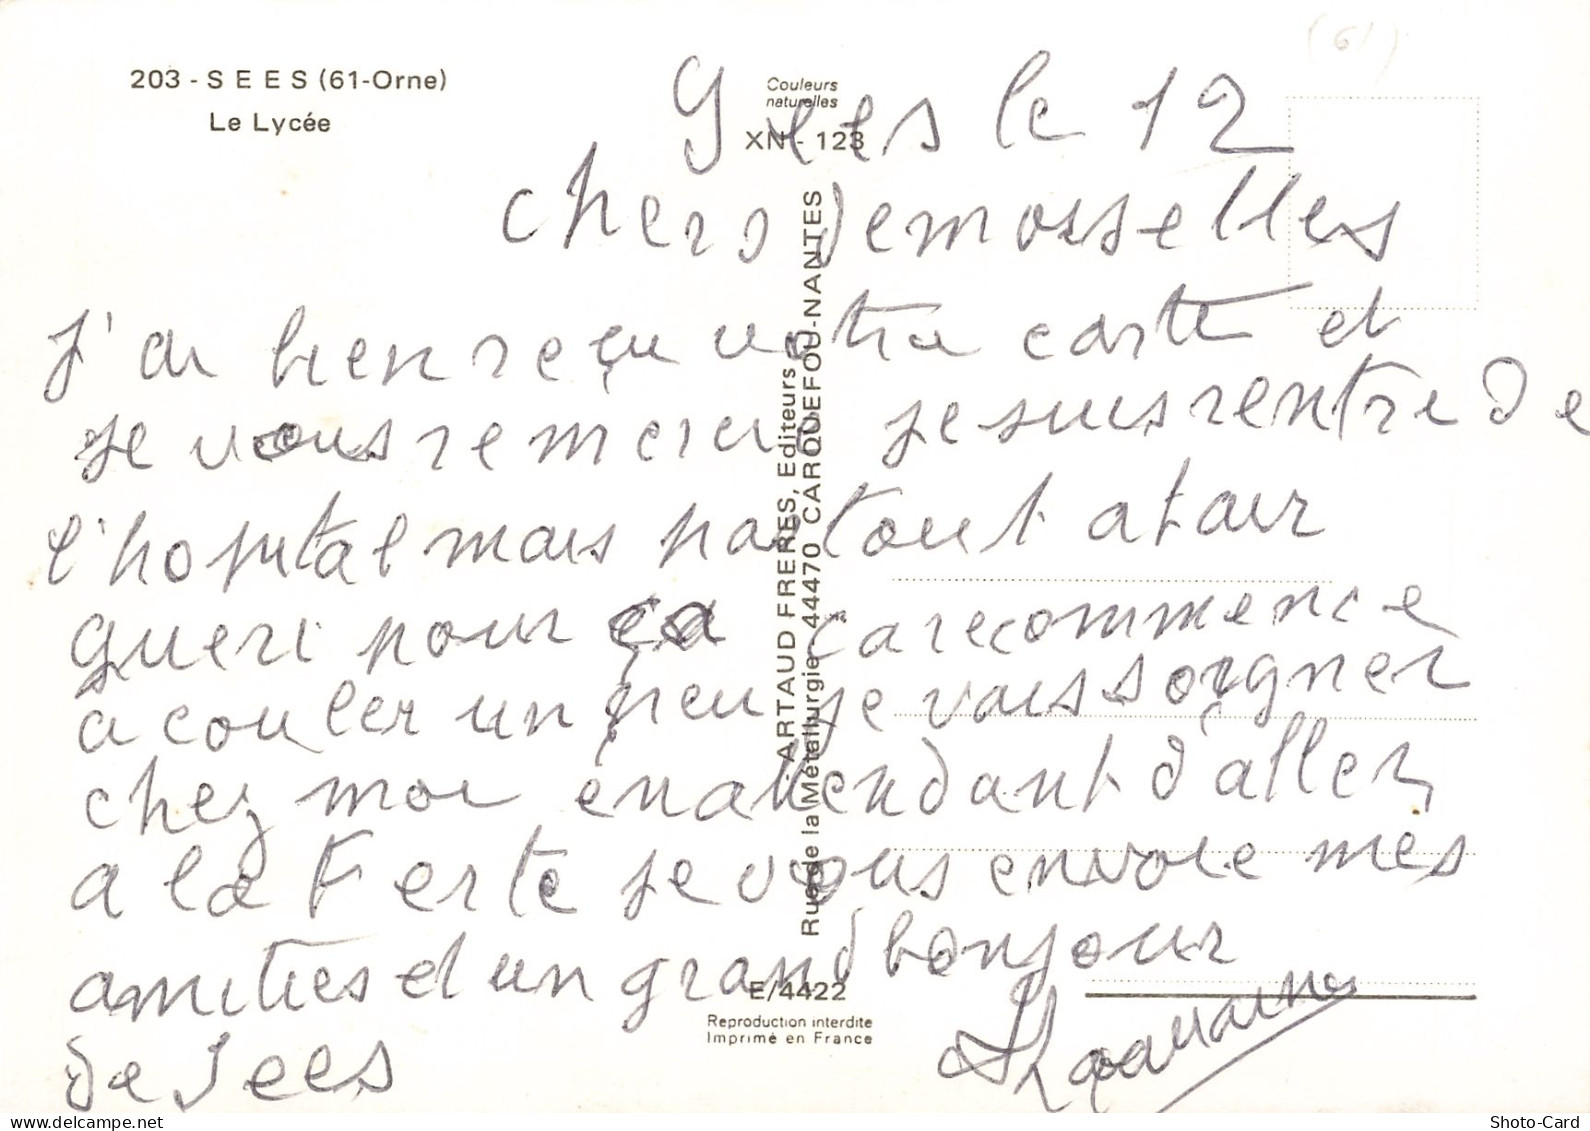 (61)
203 - SEES (61-Orne)
Le Lycée
Couleurs
naturelles
XN - 123
Sees le 12
chers demosselles
J'ai bien reçu votre carte et
je vous remerci je suis rentre de
l'hopital mais pas tout a fair
gueri pour ça recommence
a couler un peu je vais soigner
chez moi en attendant d'aller
a la Ferte je vous envoie mes
amities et un grand bonjour
de Sees
ARTAUD FRERES, Editeurs
Rue de la Métallurgie - 44470 CARQUEFOU-NANTES
E/4422
Reproduction interdite
Imprimé en France
Shoto-Card